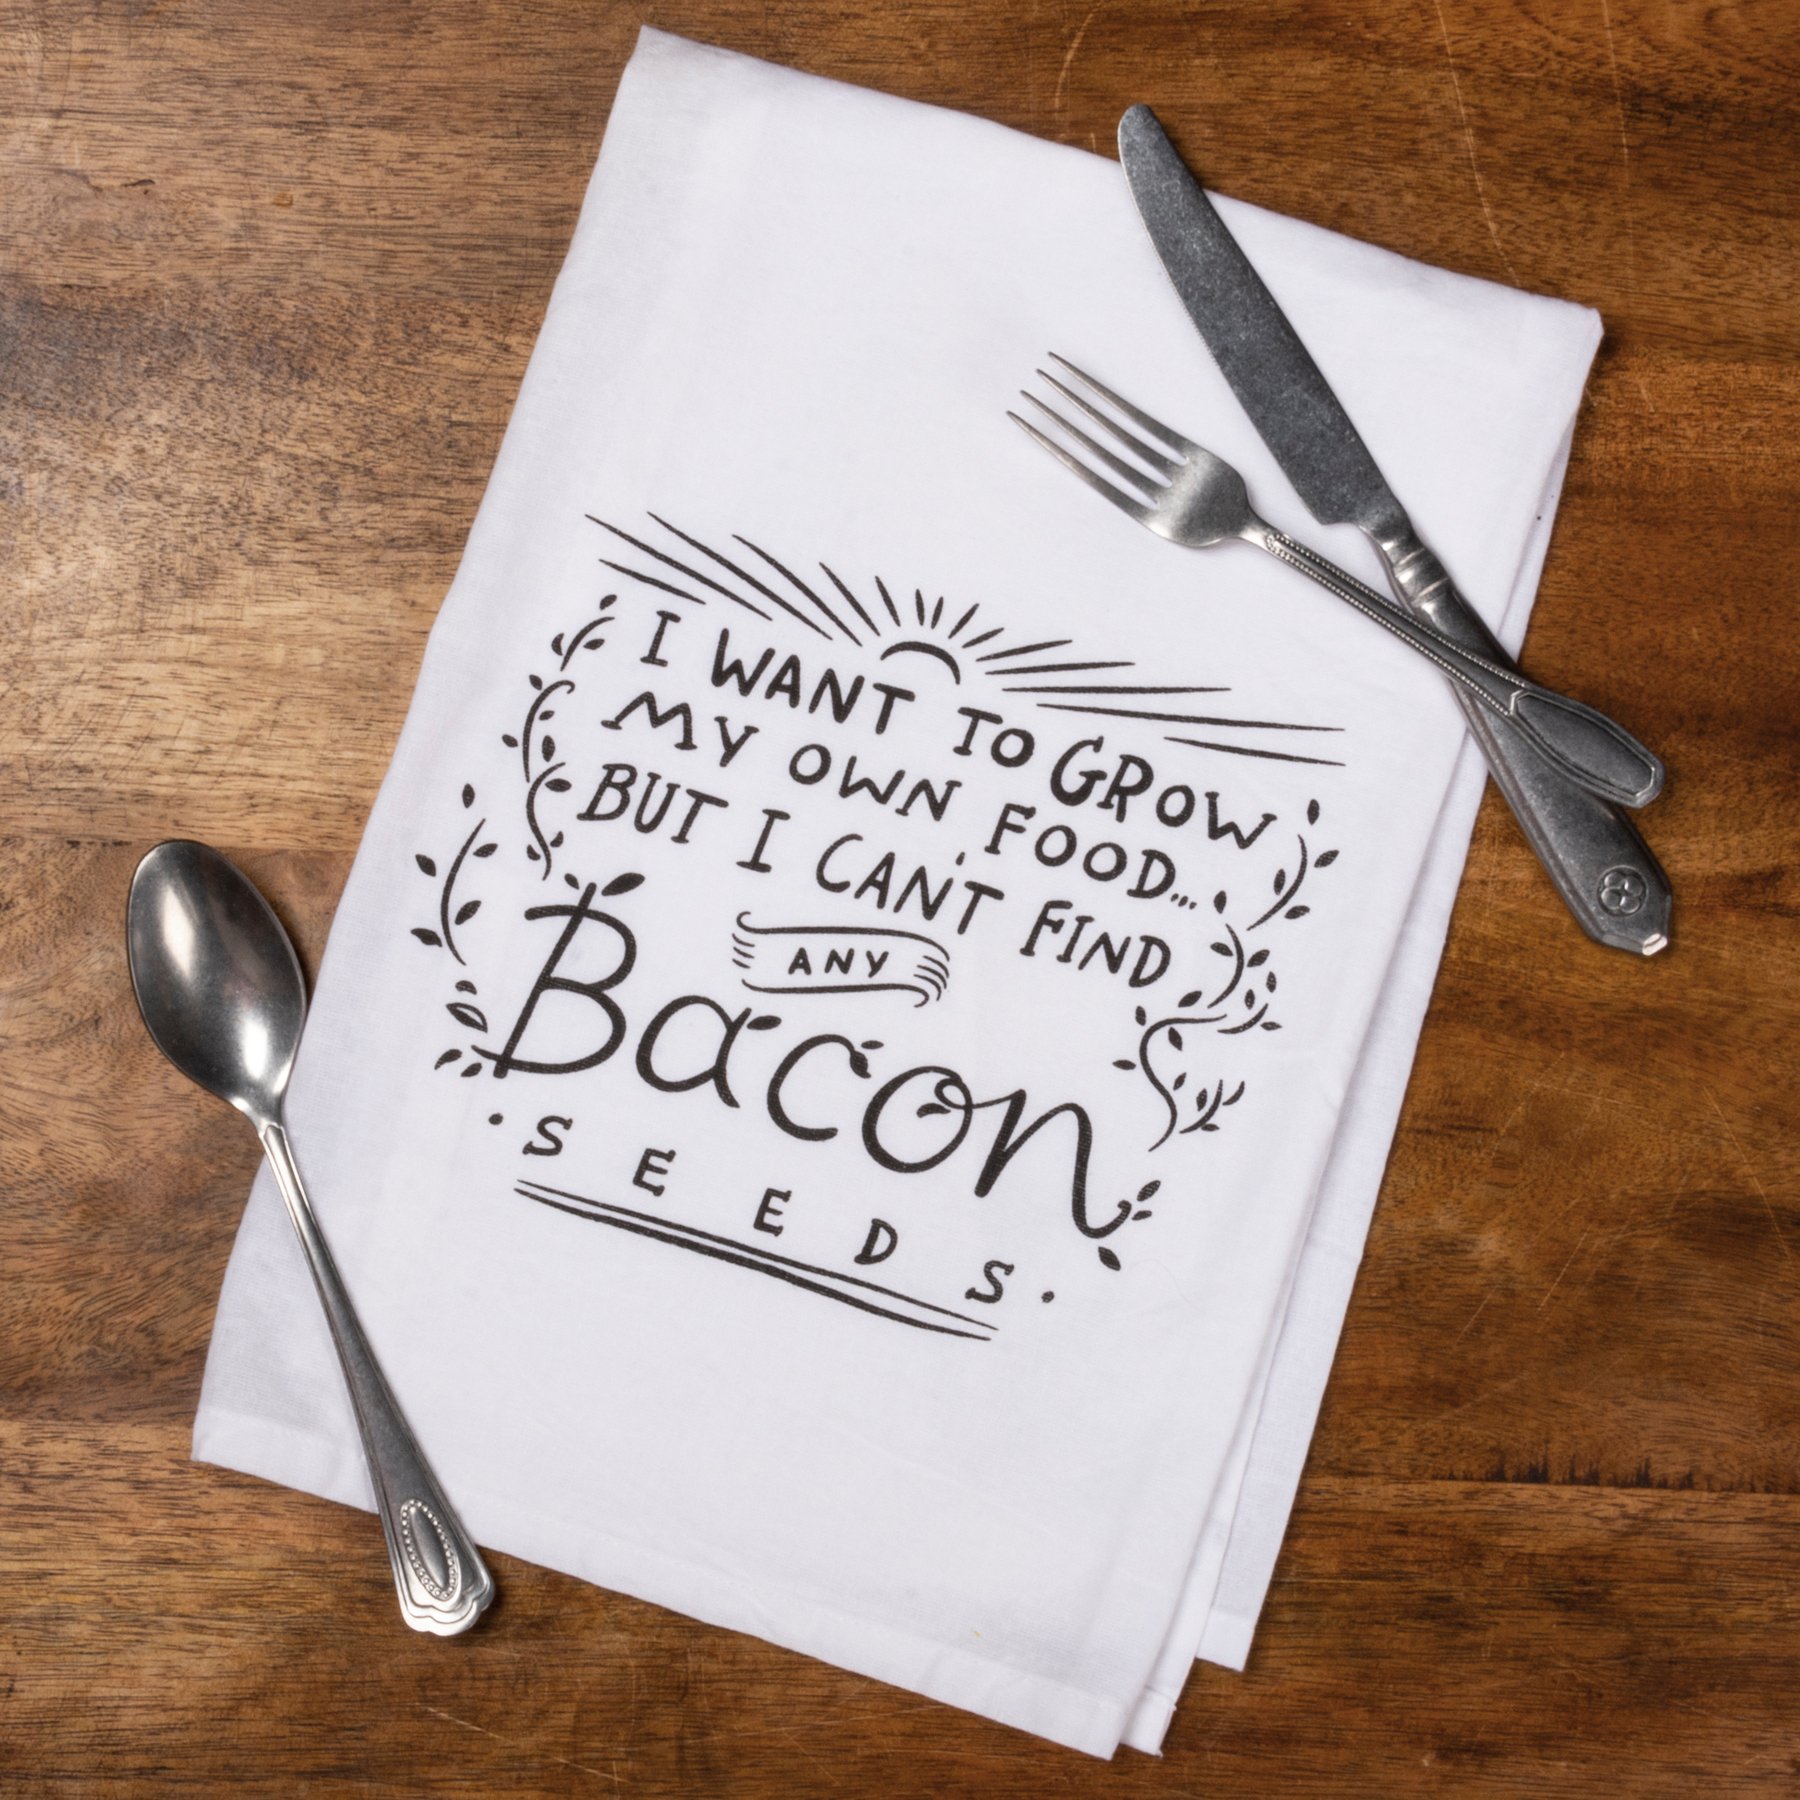 I WANT TO GROW
MY OWN FOOD...
BUT I CAN'T FIND
ANY
Bacon
SEEDS